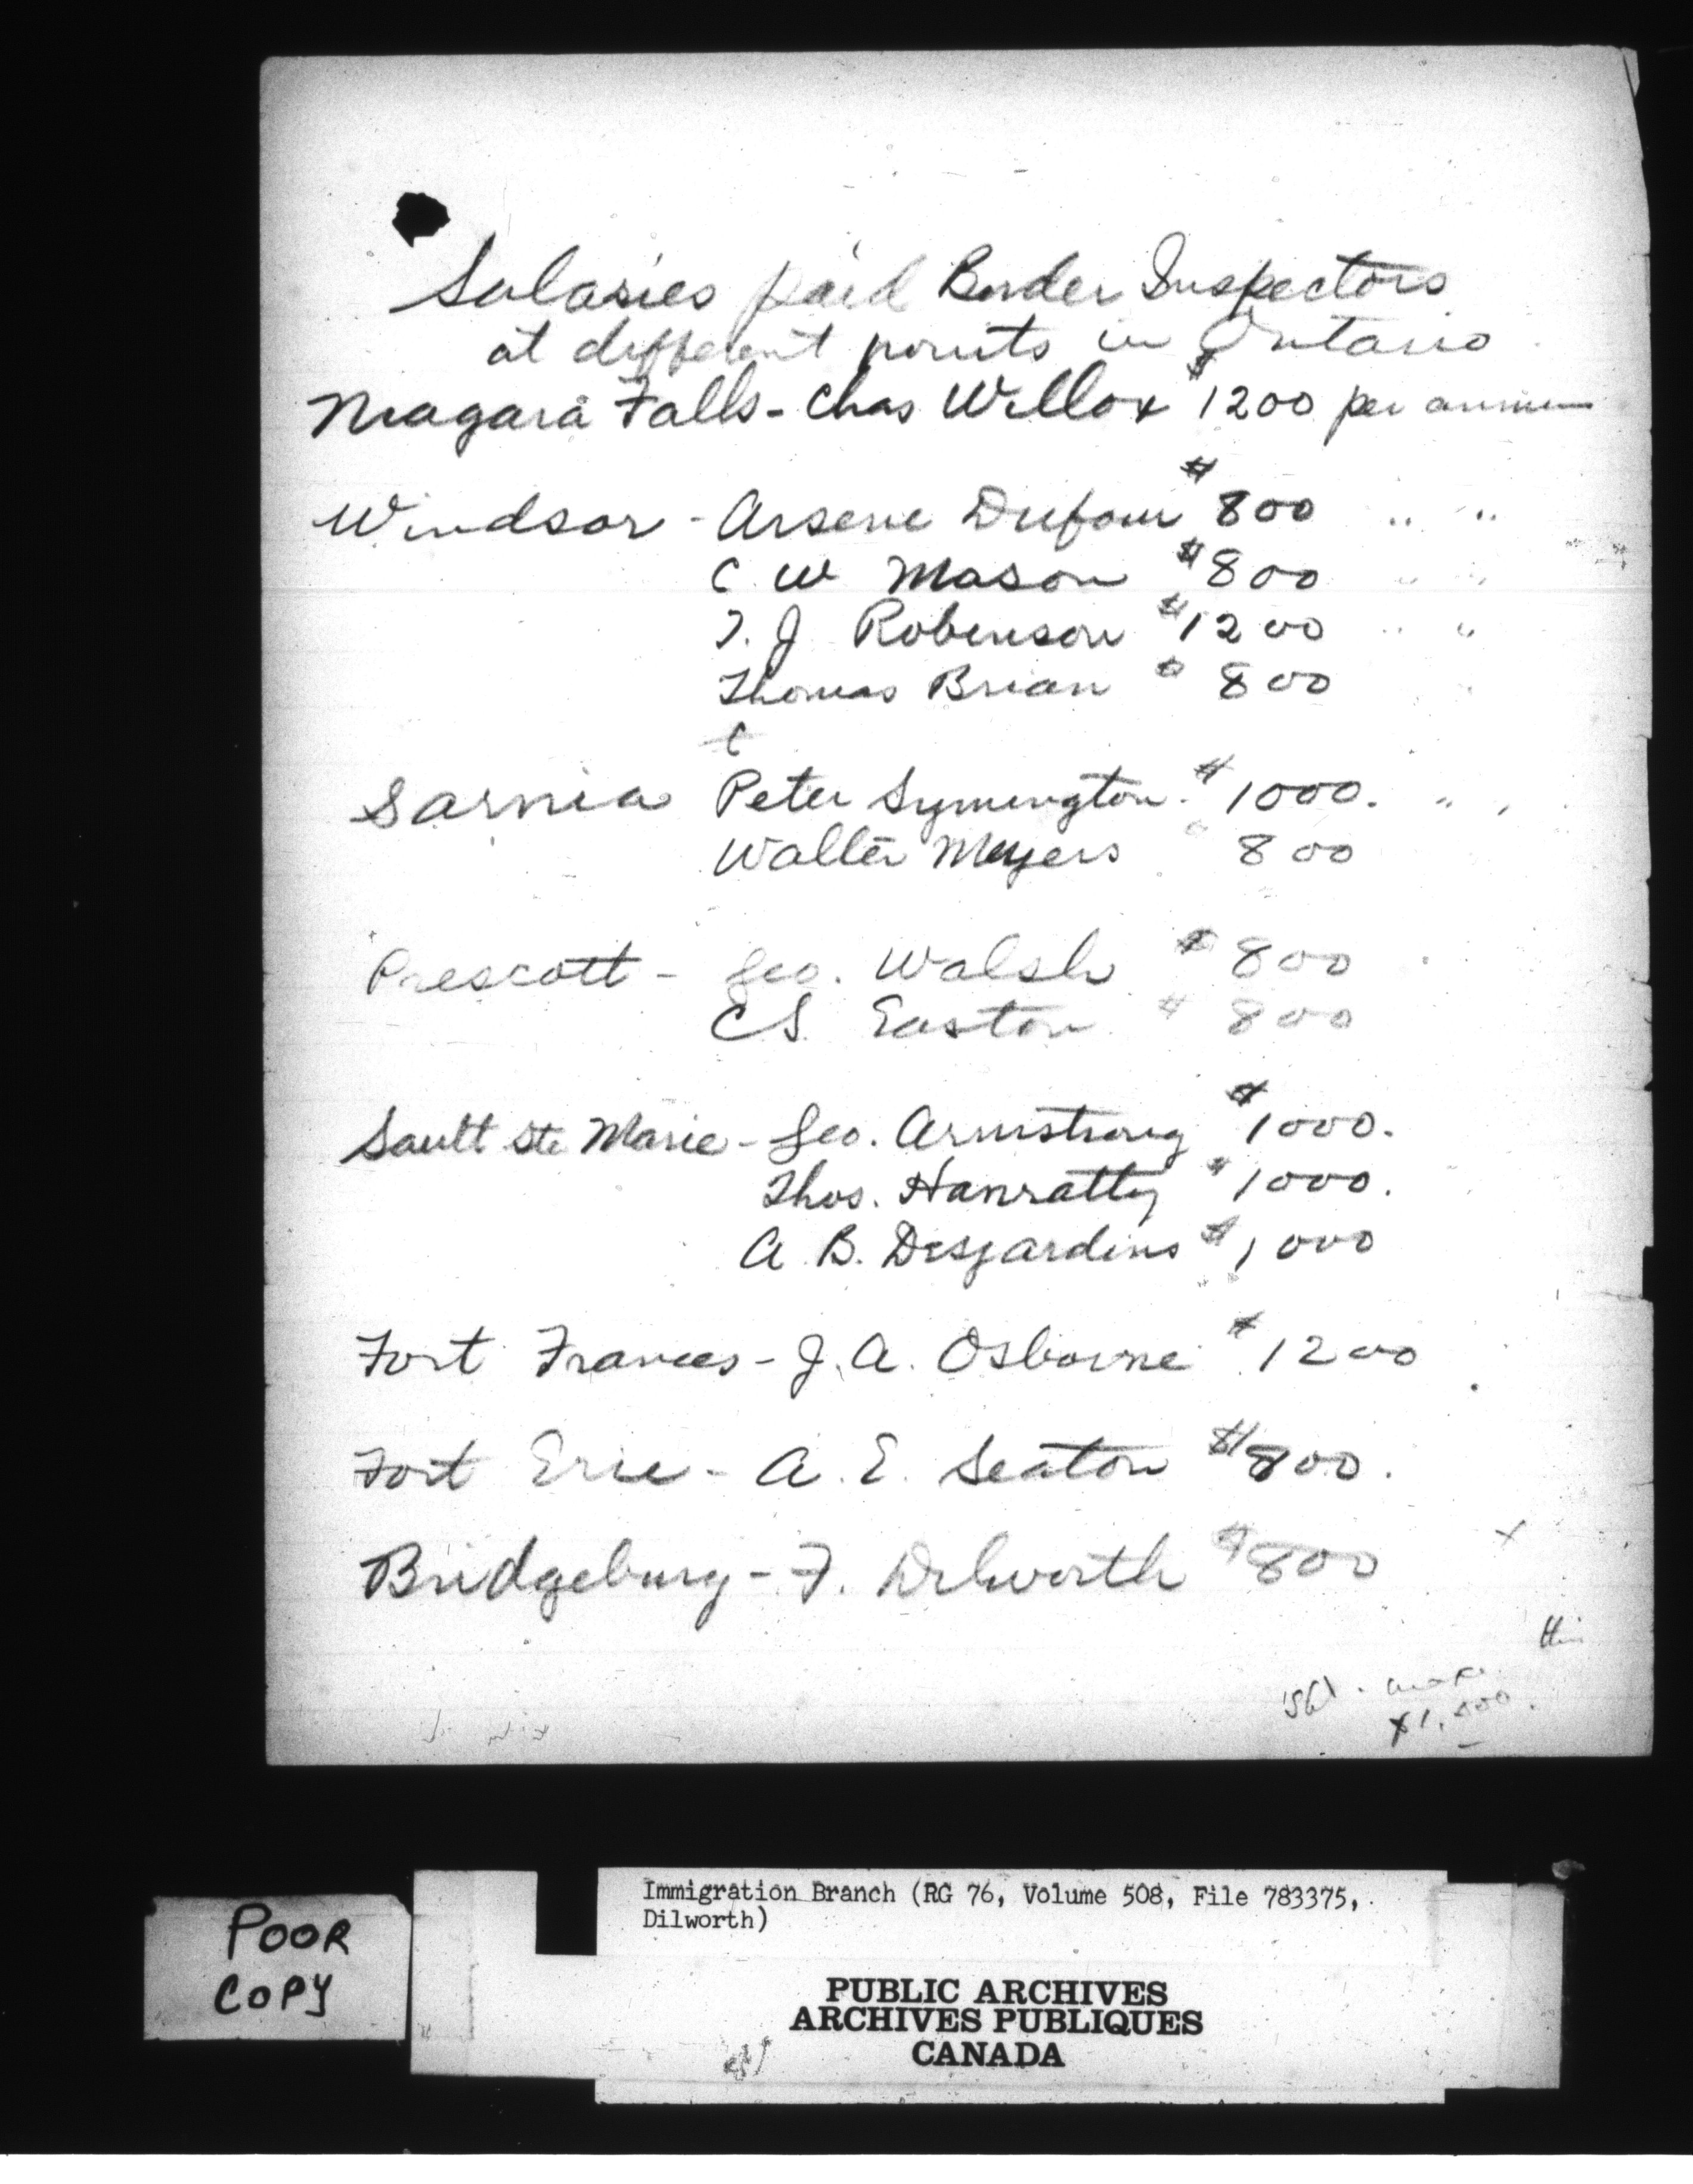 Salaries paid Border Inspectors
at different points in Ontario
Niagara Falls - Chas Willox $1200 per annum
Windsor - Arsene Dufour $800 " "
C W Mason $800 " "
T. J Robinson $1200 " "
Thomas Brian $800 "
C
Sarnia Peter Symington. $1000. " "
Walter Meyers " 800
Prescott - Geo. Walsh $800
C S. Easton $800
Sault Ste Marie - Geo. Armstrong $1000.
Thos. Hanratty $1000.
A B. Desjardins $1000
Fort Frances - J. A. Osborne $1200
Fort Erie - A. E. Seaton $800.
Bridgeburg - F. Dilworth $800
x
this
POOR
COPY
Immigration Branch (RG 76, Volume 508, File 783375,
Dilworth)
PUBLIC ARCHIVES
ARCHIVES PUBLIQUES
CANADA